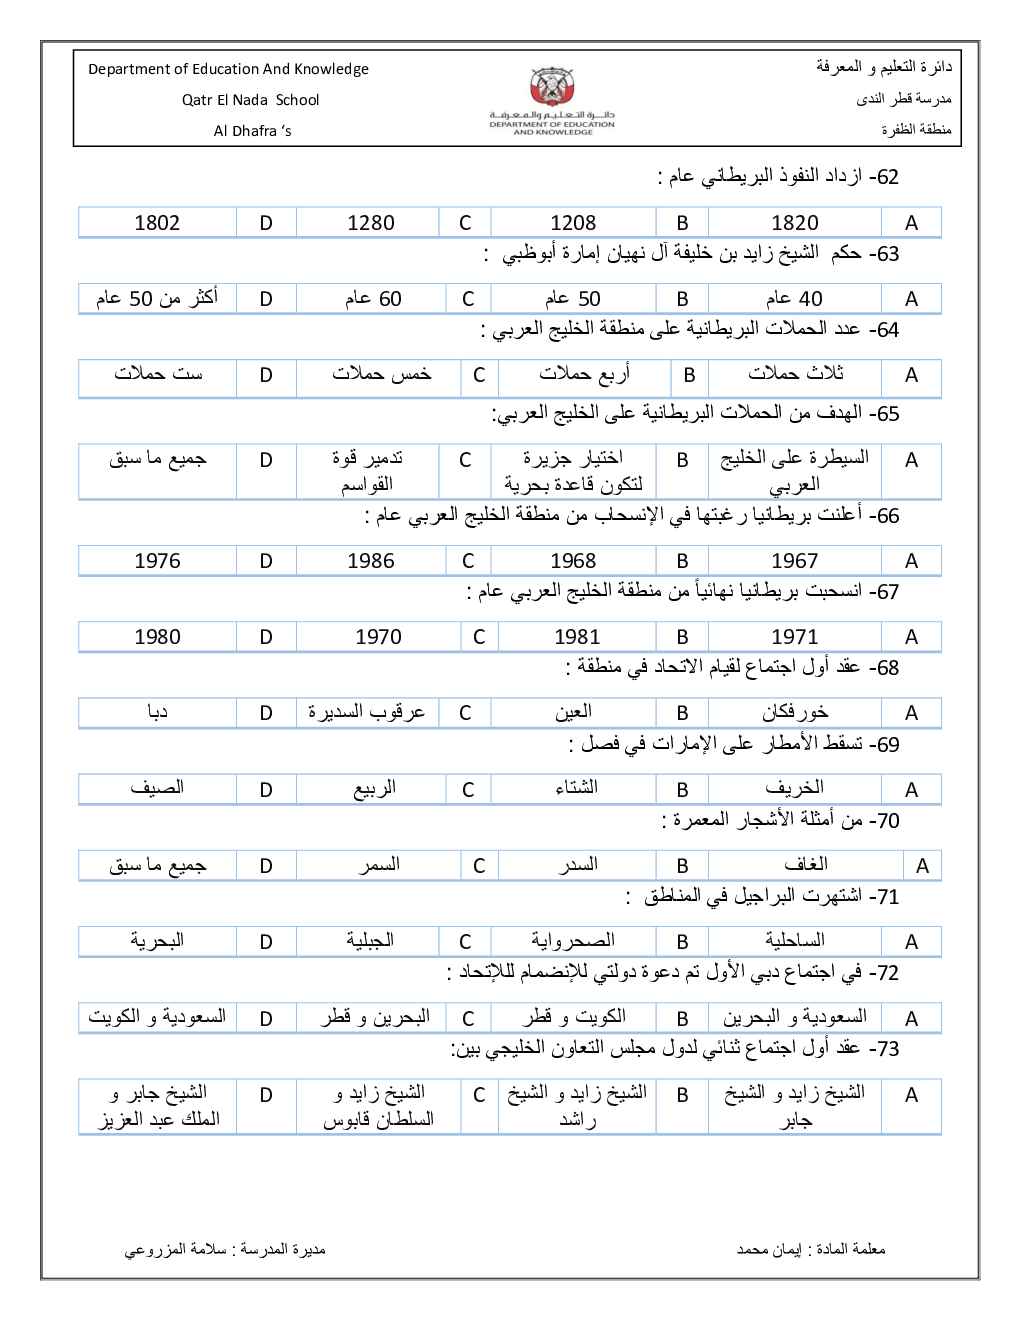 دائرة التعليم و المعرفة
مدرسة قطر الندى
منطقة الظفرة
دائـرة التـعـلـيـم والـمـعـرفـة
DEPARTMENT OF EDUCATION
AND KNOWLEDGE
Department of Education And Knowledge
Qatr El Nada School
Al Dhafra ‘s
62- ازداد النفوذ البريطاني عام :
A 1820 B 1208 C 1280 D 1802
63- حكم الشيخ زايد بن خليفة آل نهيان إمارة أبوظبي :
A 40 عام B 50 عام C 60 عام D أكثر من 50 عام
64- عدد الحملات البريطانية على منطقة الخليج العربي :
A ثلاث حملات B أربع حملات C خمس حملات D ست حملات
65- الهدف من الحملات البريطانية على الخليج العربي:
A السيطرة على الخليج العربي B اختيار جزيرة لتكون قاعدة بحرية C تدمير قوة القواسم D جميع ما سبق
66- أعلنت بريطانيا رغبتها في الإنسحاب من منطقة الخليج العربي عام :
A 1967 B 1968 C 1986 D 1976
67- انسحبت بريطانيا نهائياً من منطقة الخليج العربي عام :
A 1971 B 1981 C 1970 D 1980
68- عقد أول اجتماع لقيام الاتحاد في منطقة :
A خورفكان B العين C عرقوب السديرة D دبا
69- تسقط الأمطار على الإمارات في فصل :
A الخريف B الشتاء C الربيع D الصيف
70- من أمثلة الأشجار المعمرة :
A الغاف B السدر C السمر D جميع ما سبق
71- اشتهرت البراجيل في المناطق :
A الساحلية B الصحرواية C الجبلية D البحرية
72- في اجتماع دبي الأول تم دعوة دولتي للإنضمام لللإتحاد :
A السعودية و البحرين B الكويت و قطر C البحرين و قطر D السعودية و الكويت
73- عقد أول اجتماع ثنائي لدول مجلس التعاون الخليجي بين:
A الشيخ زايد و الشيخ جابر B الشيخ زايد و الشيخ راشد C الشيخ زايد و السلطان قابوس D الشيخ جابر و الملك عبد العزيز
معلمة المادة : إيمان محمد
مديرة المدرسة : سلامة المزروعي